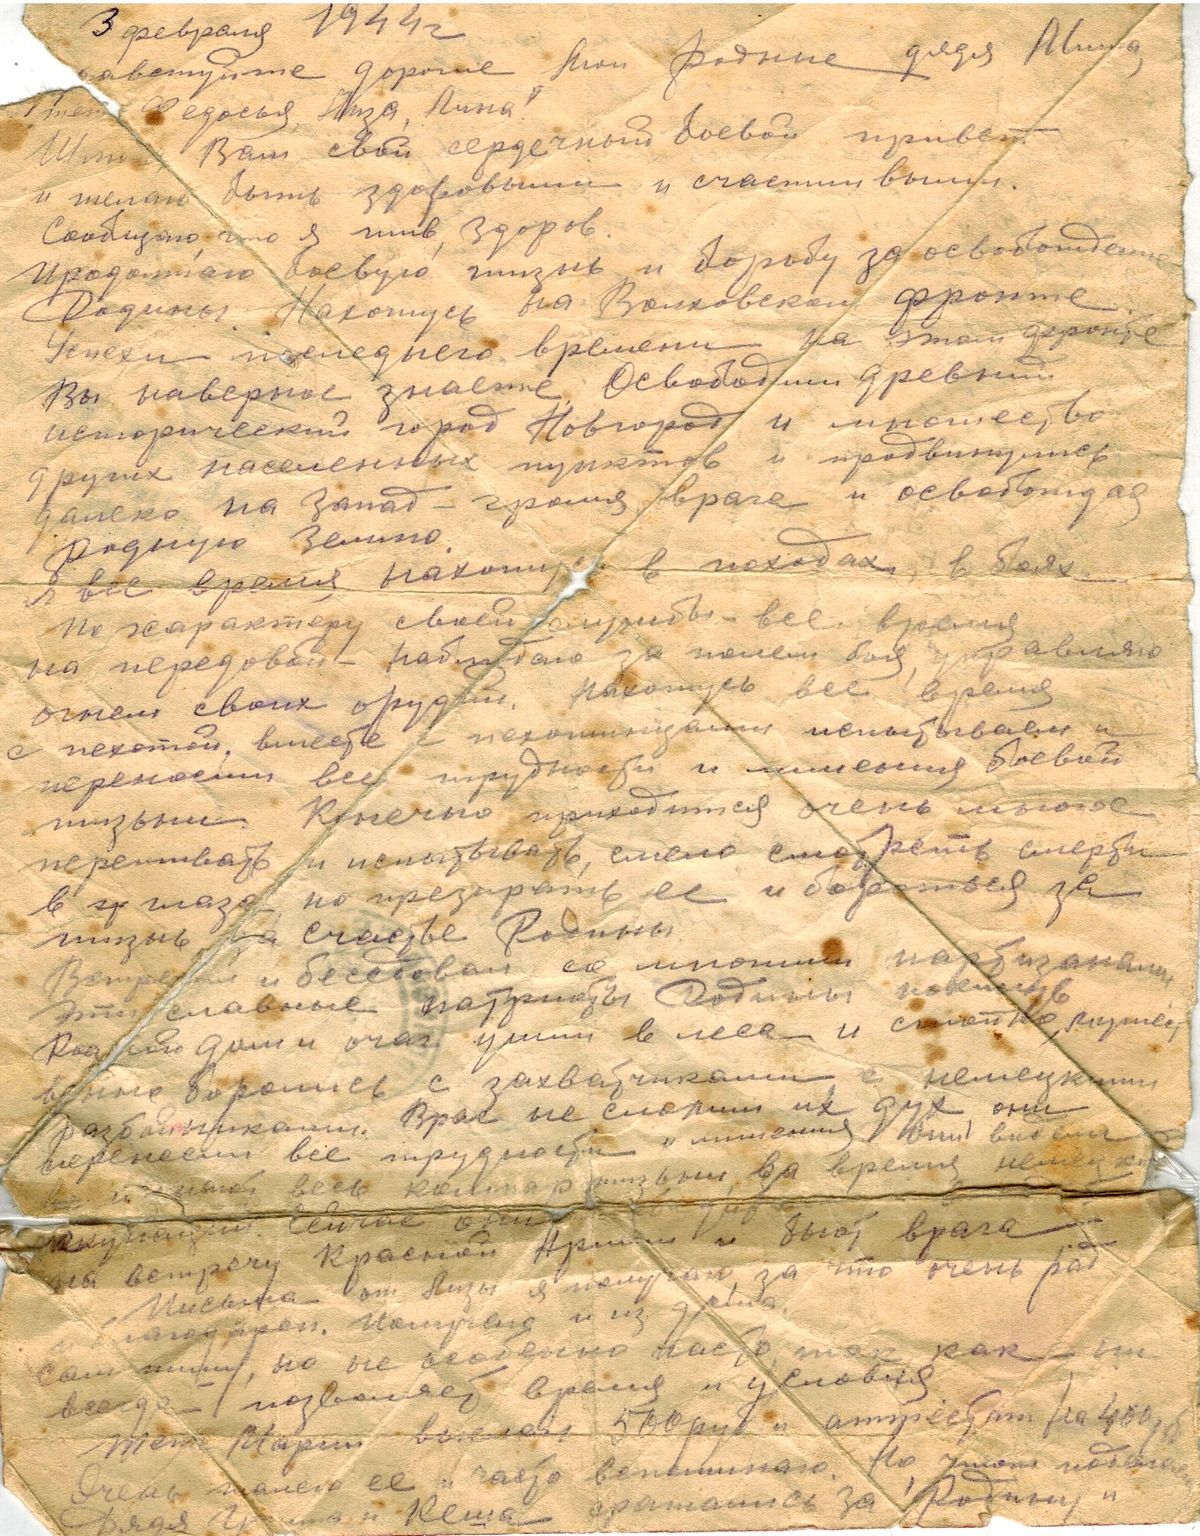 3 февраля 1944 г
дорогие Мои Родные дядя Миша,
тетя Федосья, Лиза, Лина!
Шлю Вам свой сердечный боевой привет
и желаю быть здоровыми и счастливыми.
Сообщаю, что я жив, здоров.
Продолжаю боевую жизнь и борьбу за освобождение
Родины. Нахожусь на Волховском фронте.
Успехи последнего времени на этом фронте
Вы наверное знаете. Освободили древний
исторический город Новгород и множество
других населенных пунктов и продвинулись
далеко на Запад – громя врага и освобождая
родную Землю.
Я все время нахожусь в походах, в боях.
По характеру своей службы – все время
на передовой – наблюдаю за полем боя, управляю
огнем своих орудий. Нахожусь все время
с пехотой, вместе с пехотинцами испытываем и
переносим все трудности и лишения боевой
жизни. Конечно приходится очень многое
переживать и испытывать, смело смотреть смерти
в глаза, но презирать ее и бороться за
жизнь, за счастье Родины
Встречал и беседовал со многими партизанами
Эти славные патриоты Родины покинув
Родной дом и очаг ушли в леса и стойко, мужест
венно боролись с захватчиками, с немецкими
разбойниками. Враг не сломил их дух они
перенесли все трудности и лишения они видели
весь кошмар жизни во время немецкой
оккупации. Сейчас они
на встречу Красной Армии и бьют врага
Письма от Лизы я получаю, за что очень рад
и благодарен. Получаю и из дома.
Сам пишу, но не особенно часто, так как не
всегда – позволяет время и условия
Тете Марии выслал 500 руб и аттестат на 400 руб
Очень жалею ее и часто вспоминаю. Но, что поделаешь
Дядя и Кеша сражались за Родину и